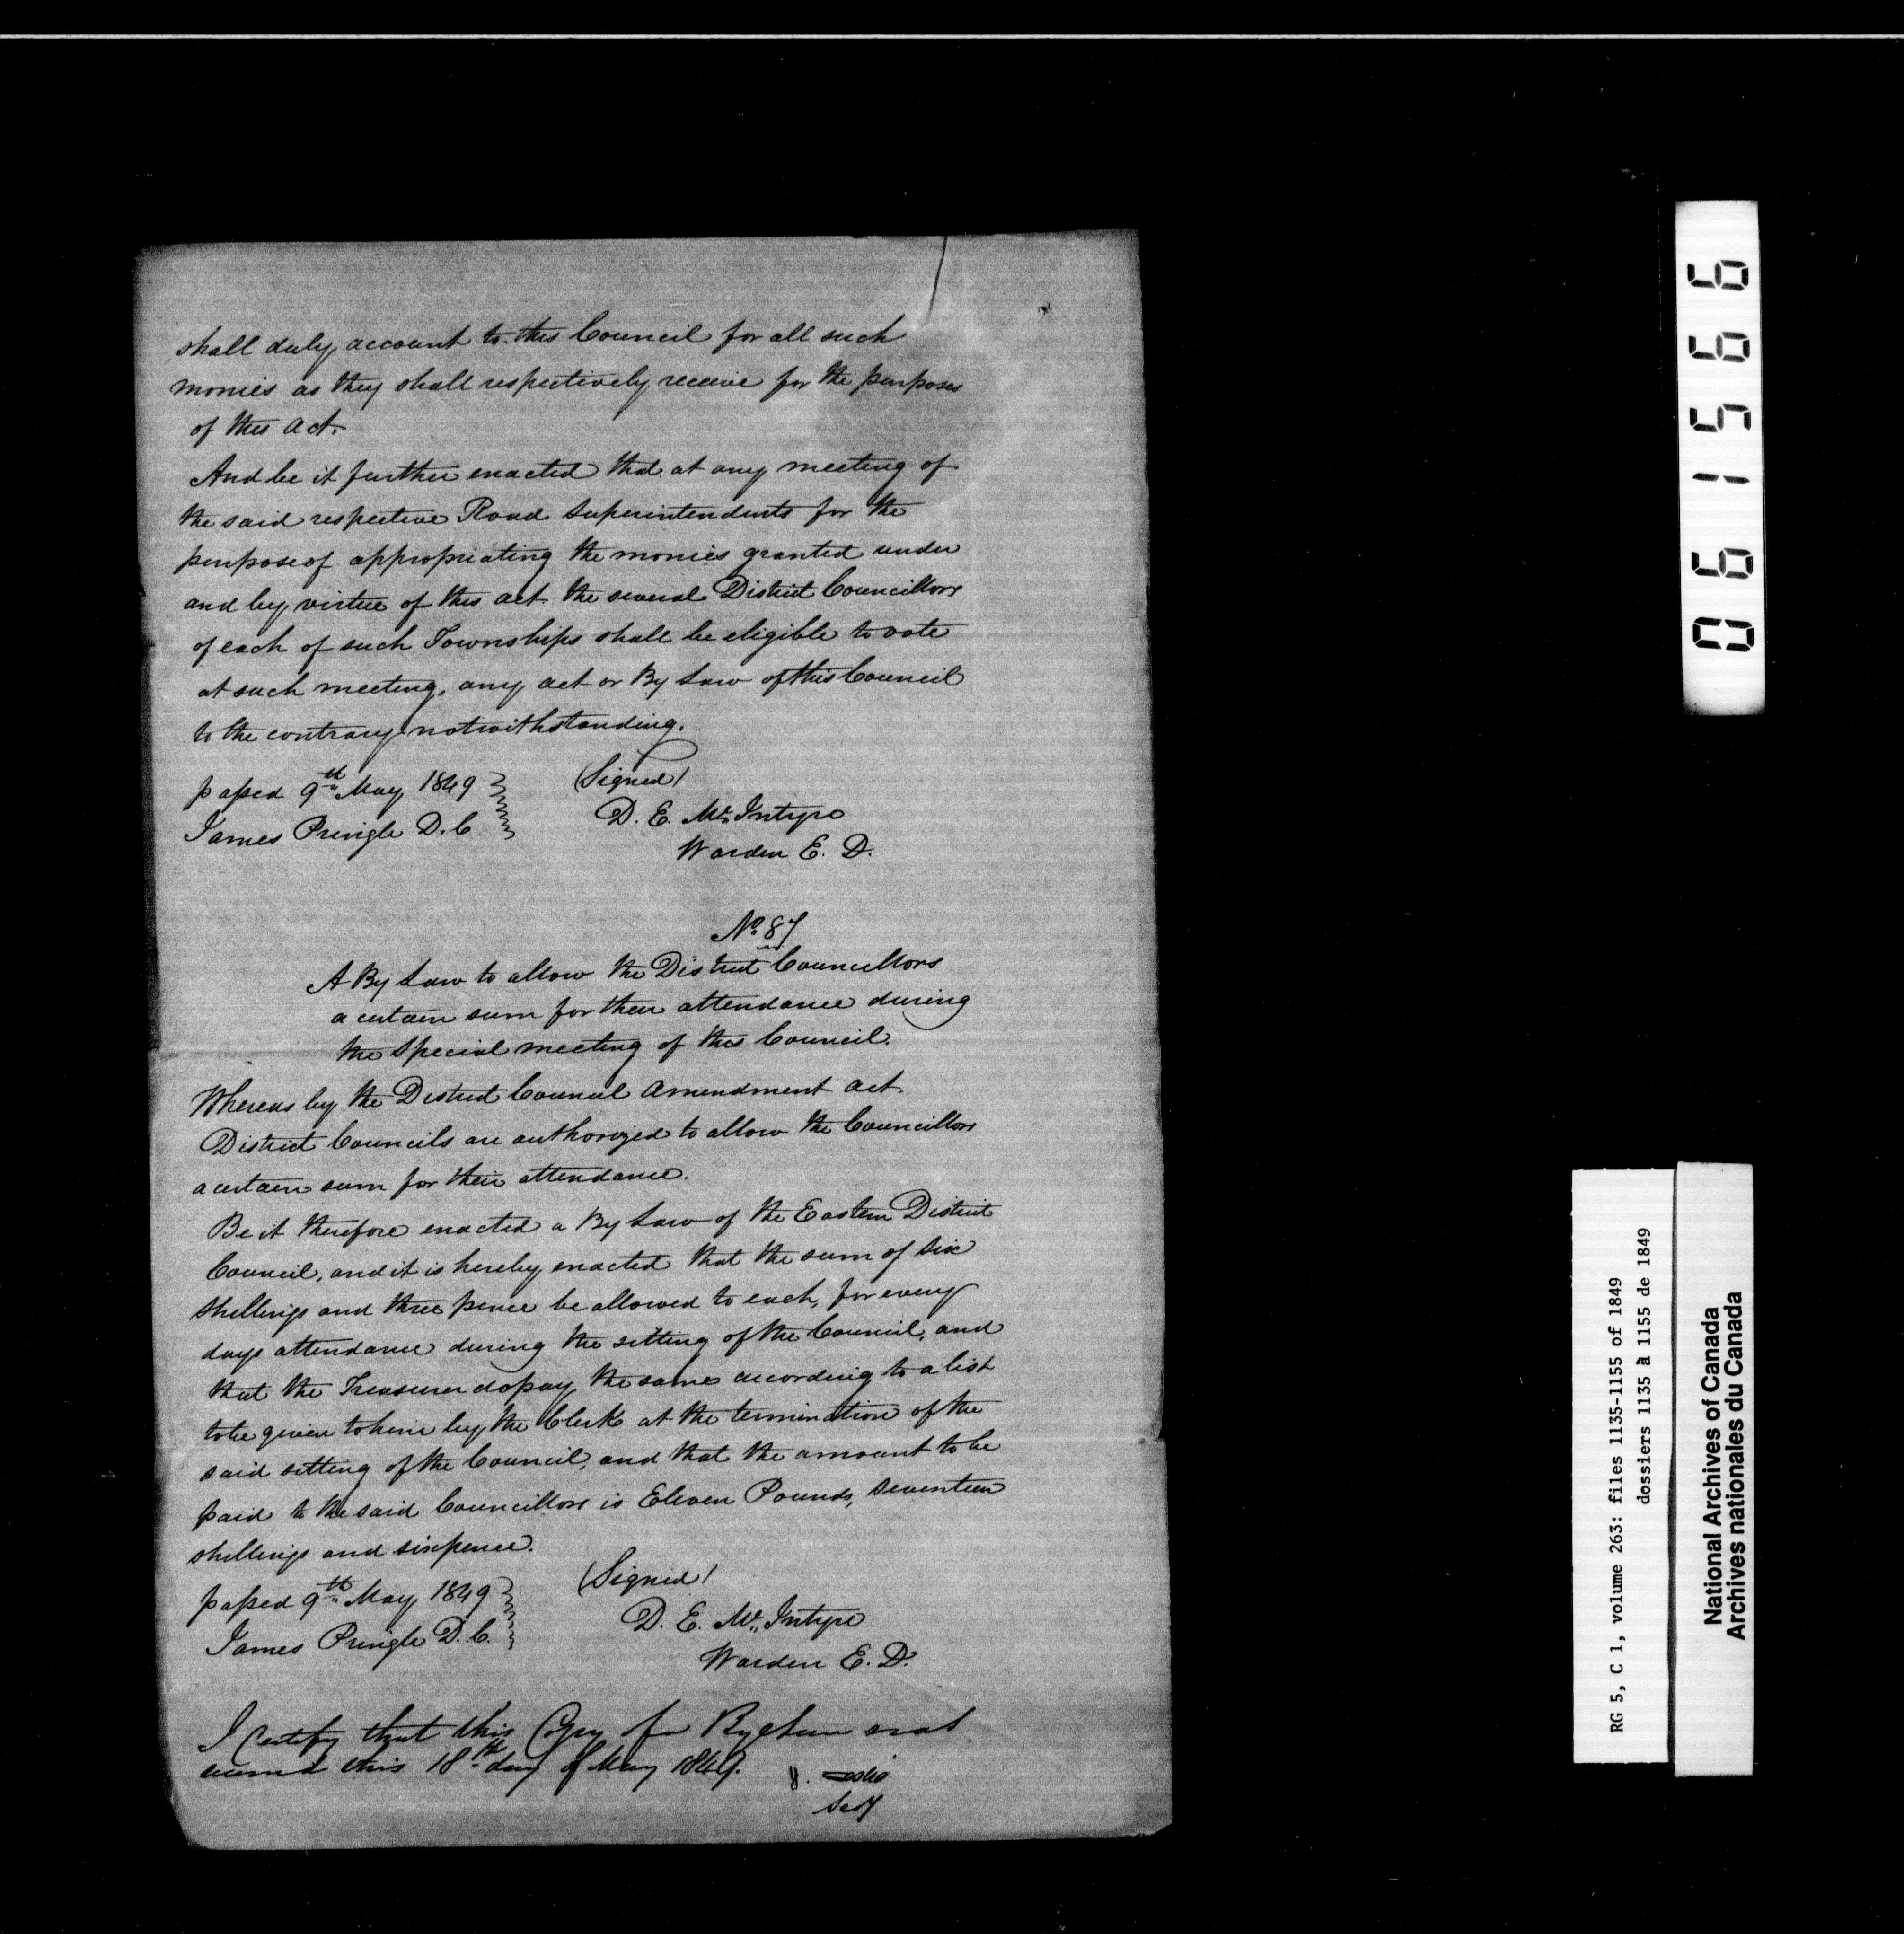 shall duly account to this Council for all such
monies as they shall respectively receive for the purposes
of this Act.
And be it further enacted that at any meeting of
the said respective Road Superintendents for the
purpose of appropriating the monies granted under
and by virtue of this act the several District Councillors
of each of such Townships shall be eligible to vote
at such meeting, any act or By Law of this Council
to the contrary notwithstanding.
passed 9th May 1849
James Pringle D.C
(Signed)
D. E. Mc Intyre
Warden E. D.
No. 87
A By Law to allow the District Councillors
a certain sum for their attendance during
the Special meeting of this Council.
Whereas by the District Council Amendment Act.
District Councils are authorized to allow the Councillors
a certain sum for their attendance.
Be it therefore enacted a By Law of the Eastern District
Council, and it is hereby enacted that the sum of Six
Shillings and three pence be allowed to each, for every
days attendance during the sitting of the Council, and
that the Treasurer do pay the same according to a list
to be given to him by the Clerk at the termination of the
said sitting of the Council, and that the amount to be
paid to the said Councillors is Eleven Pounds, Seventeen
shillings and sixpence.
passed 9th May 1849
James Pringle D.C.
(Signed)
D. E. Mc Intyre
Warden E. D.
I Certify that this Copy of a Bylaw was
this 18th day of May 1849.
Secy
061566
RG 5, C 1, volume 263: files 1135-1155 of 1849
dossiers 1135 à 1155 de 1849
National Archives of Canada
Archives nationales du Canada